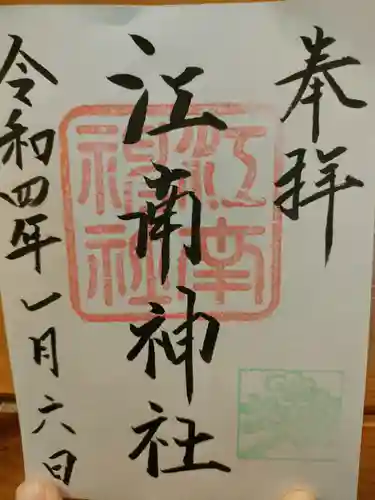 奉拝
江南神社
江南神社
令和四年一月六日